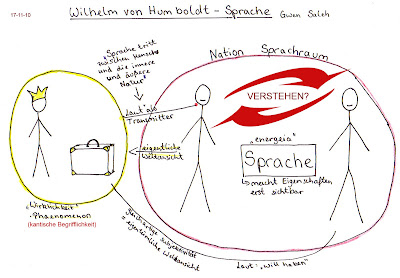 17-11-10
Wilhelm von Humboldt - Sprache Gwen Saleh
"Sprache tritt
zwischen Mensch
und die innere
und äußere
Natur"
Nation Sprachraum
Laut als
Transmitter
VERSTEHEN?
eigentliche
Weltansicht
"energeia"
Sprache
↳ macht Eigenschaften
erst sichtbar
"Wirklichkeit"
- Phaenomenon
(kantische Begrifflichkeit)
gleichartige Subjektivität
= eigentümliche Weltansicht
Laut: "will haben"